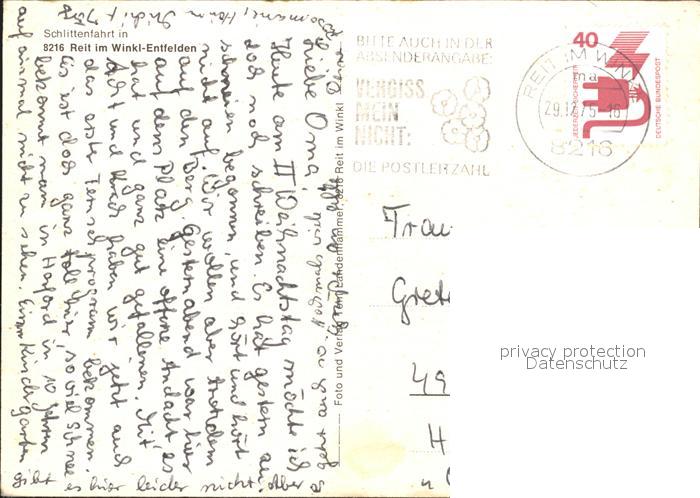 Schlittenfahrt in
8216 Reit im Winkl-Entfelden
Liebe Oma,
Heute am II Weihnachtstag möchte ich
doch noch schreiben. Es hat gestern an
schneien begonnen, und hört und hört
nicht auf. Wir wollen aber trotzdem
auf den Berg. Gestern abend war hier
auf dem Platz eine offene Andacht es
hat uns ganz gut gefallen. Mit
Acht und Krach haben wir jetzt auch
das erste Fernsehprogram bekommen.
Es ist doch ganz toll hier, so viel Schnee
bekommt man in Herford in 10 Jahren
auf einmal nicht zu sehen. Einen Kindergarten
gibt es hier leider nicht. Aber
Foto und Verlag Toni Lindenhammer, 8216 Reit im Winkl
BITTE AUCH IN DER
ABSENDERANGABE:
VERGISS
MEIN
NICHT:
DIE POSTLEITZAHL
REIT IM WINKL
ma
29.12.75-16
8216
40
JEDERZEIT SICHERHEIT
DEUTSCHE BUNDESPOST
Frau
Gret
49
H
privacy protection
Datenschutz